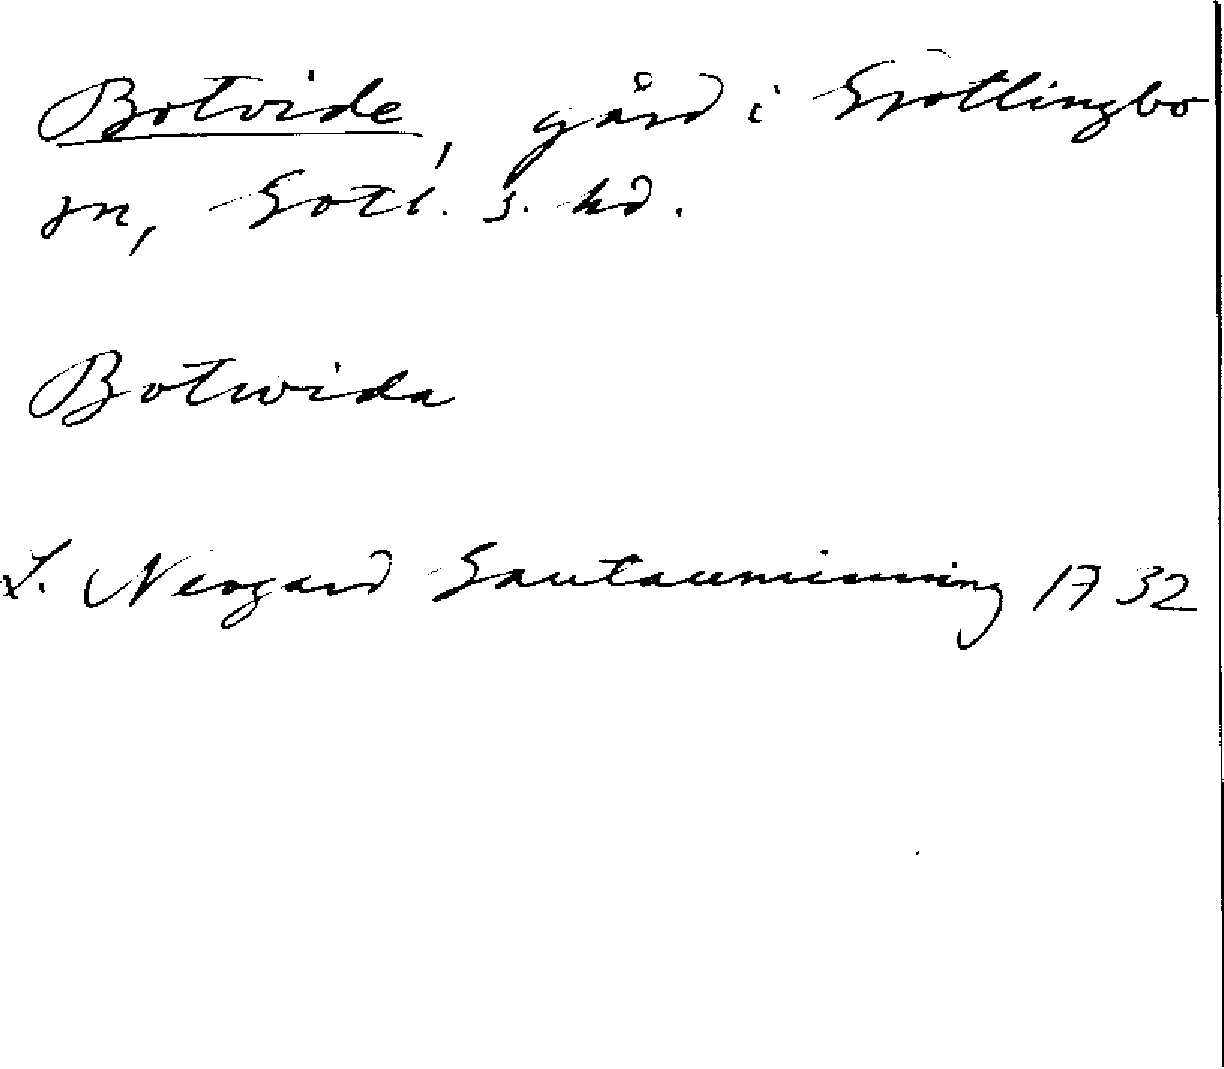 Botvide, gård i Grötlingbo
sn, Gotl. s. hd.
Botwida
L. Neogard Gautauminning 1732